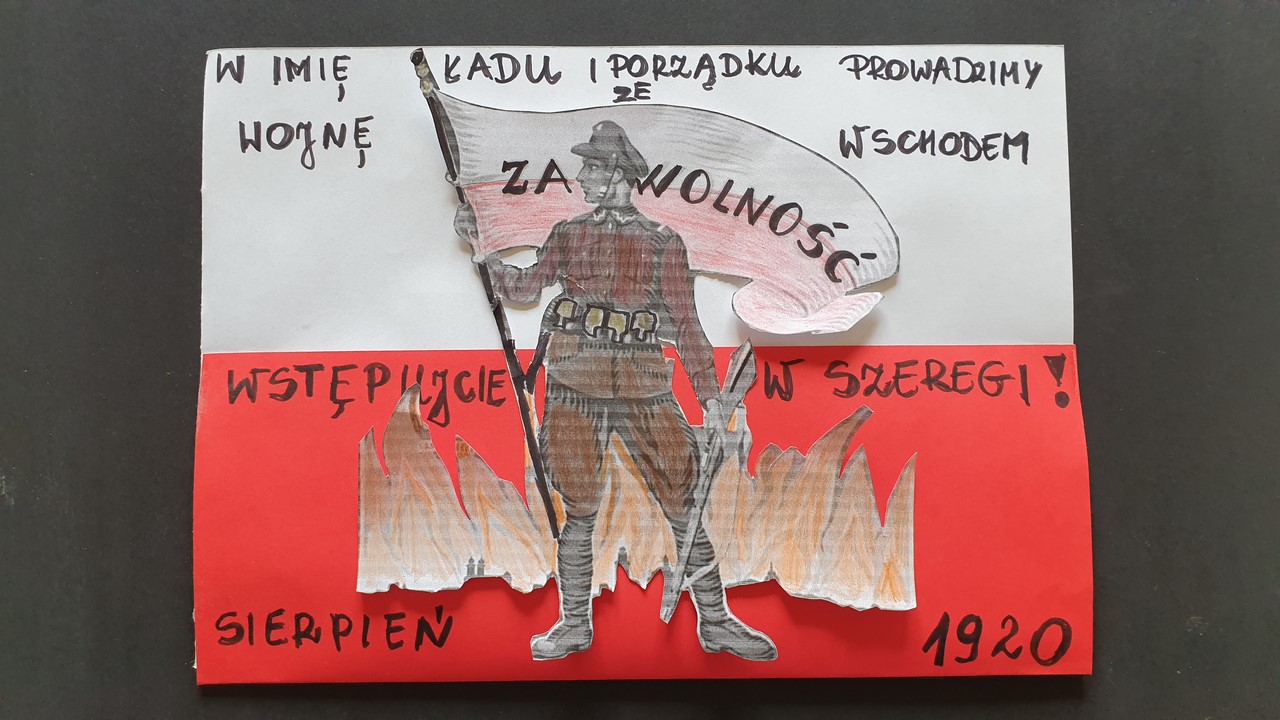 W IMIĘ ŁADU I PORZĄDKU PROWADZIMY
WOJNĘ ZE WSCHODEM
ZA WOLNOŚĆ
WSTĘPUJCIE W SZEREGI!
SIERPIEŃ 1920